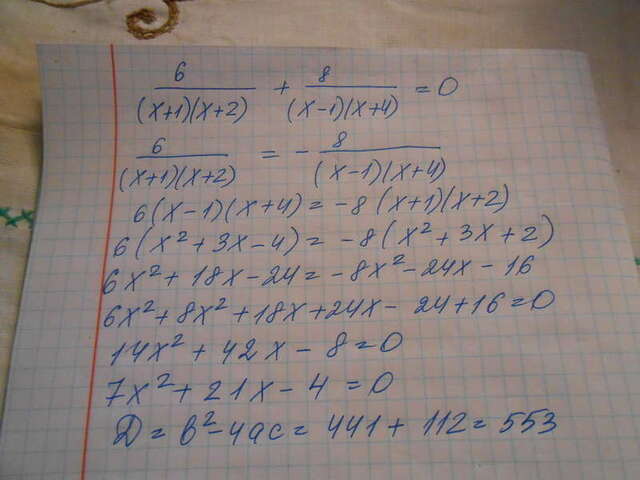 6/((x+1)(x+2)) + 8/((x-1)(x+4)) = 0
6/((x+1)(x+2)) = - 8/((x-1)(x+4))
6(x-1)(x+4) = -8(x+1)(x+2)
6(x²+3x-4) = -8(x²+3x+2)
6x²+18x-24 = -8x²-24x-16
6x²+8x²+18x+24x-24+16=0
14x²+42x-8=0
7x²+21x-4=0
D=b²-4ac=441+112=553